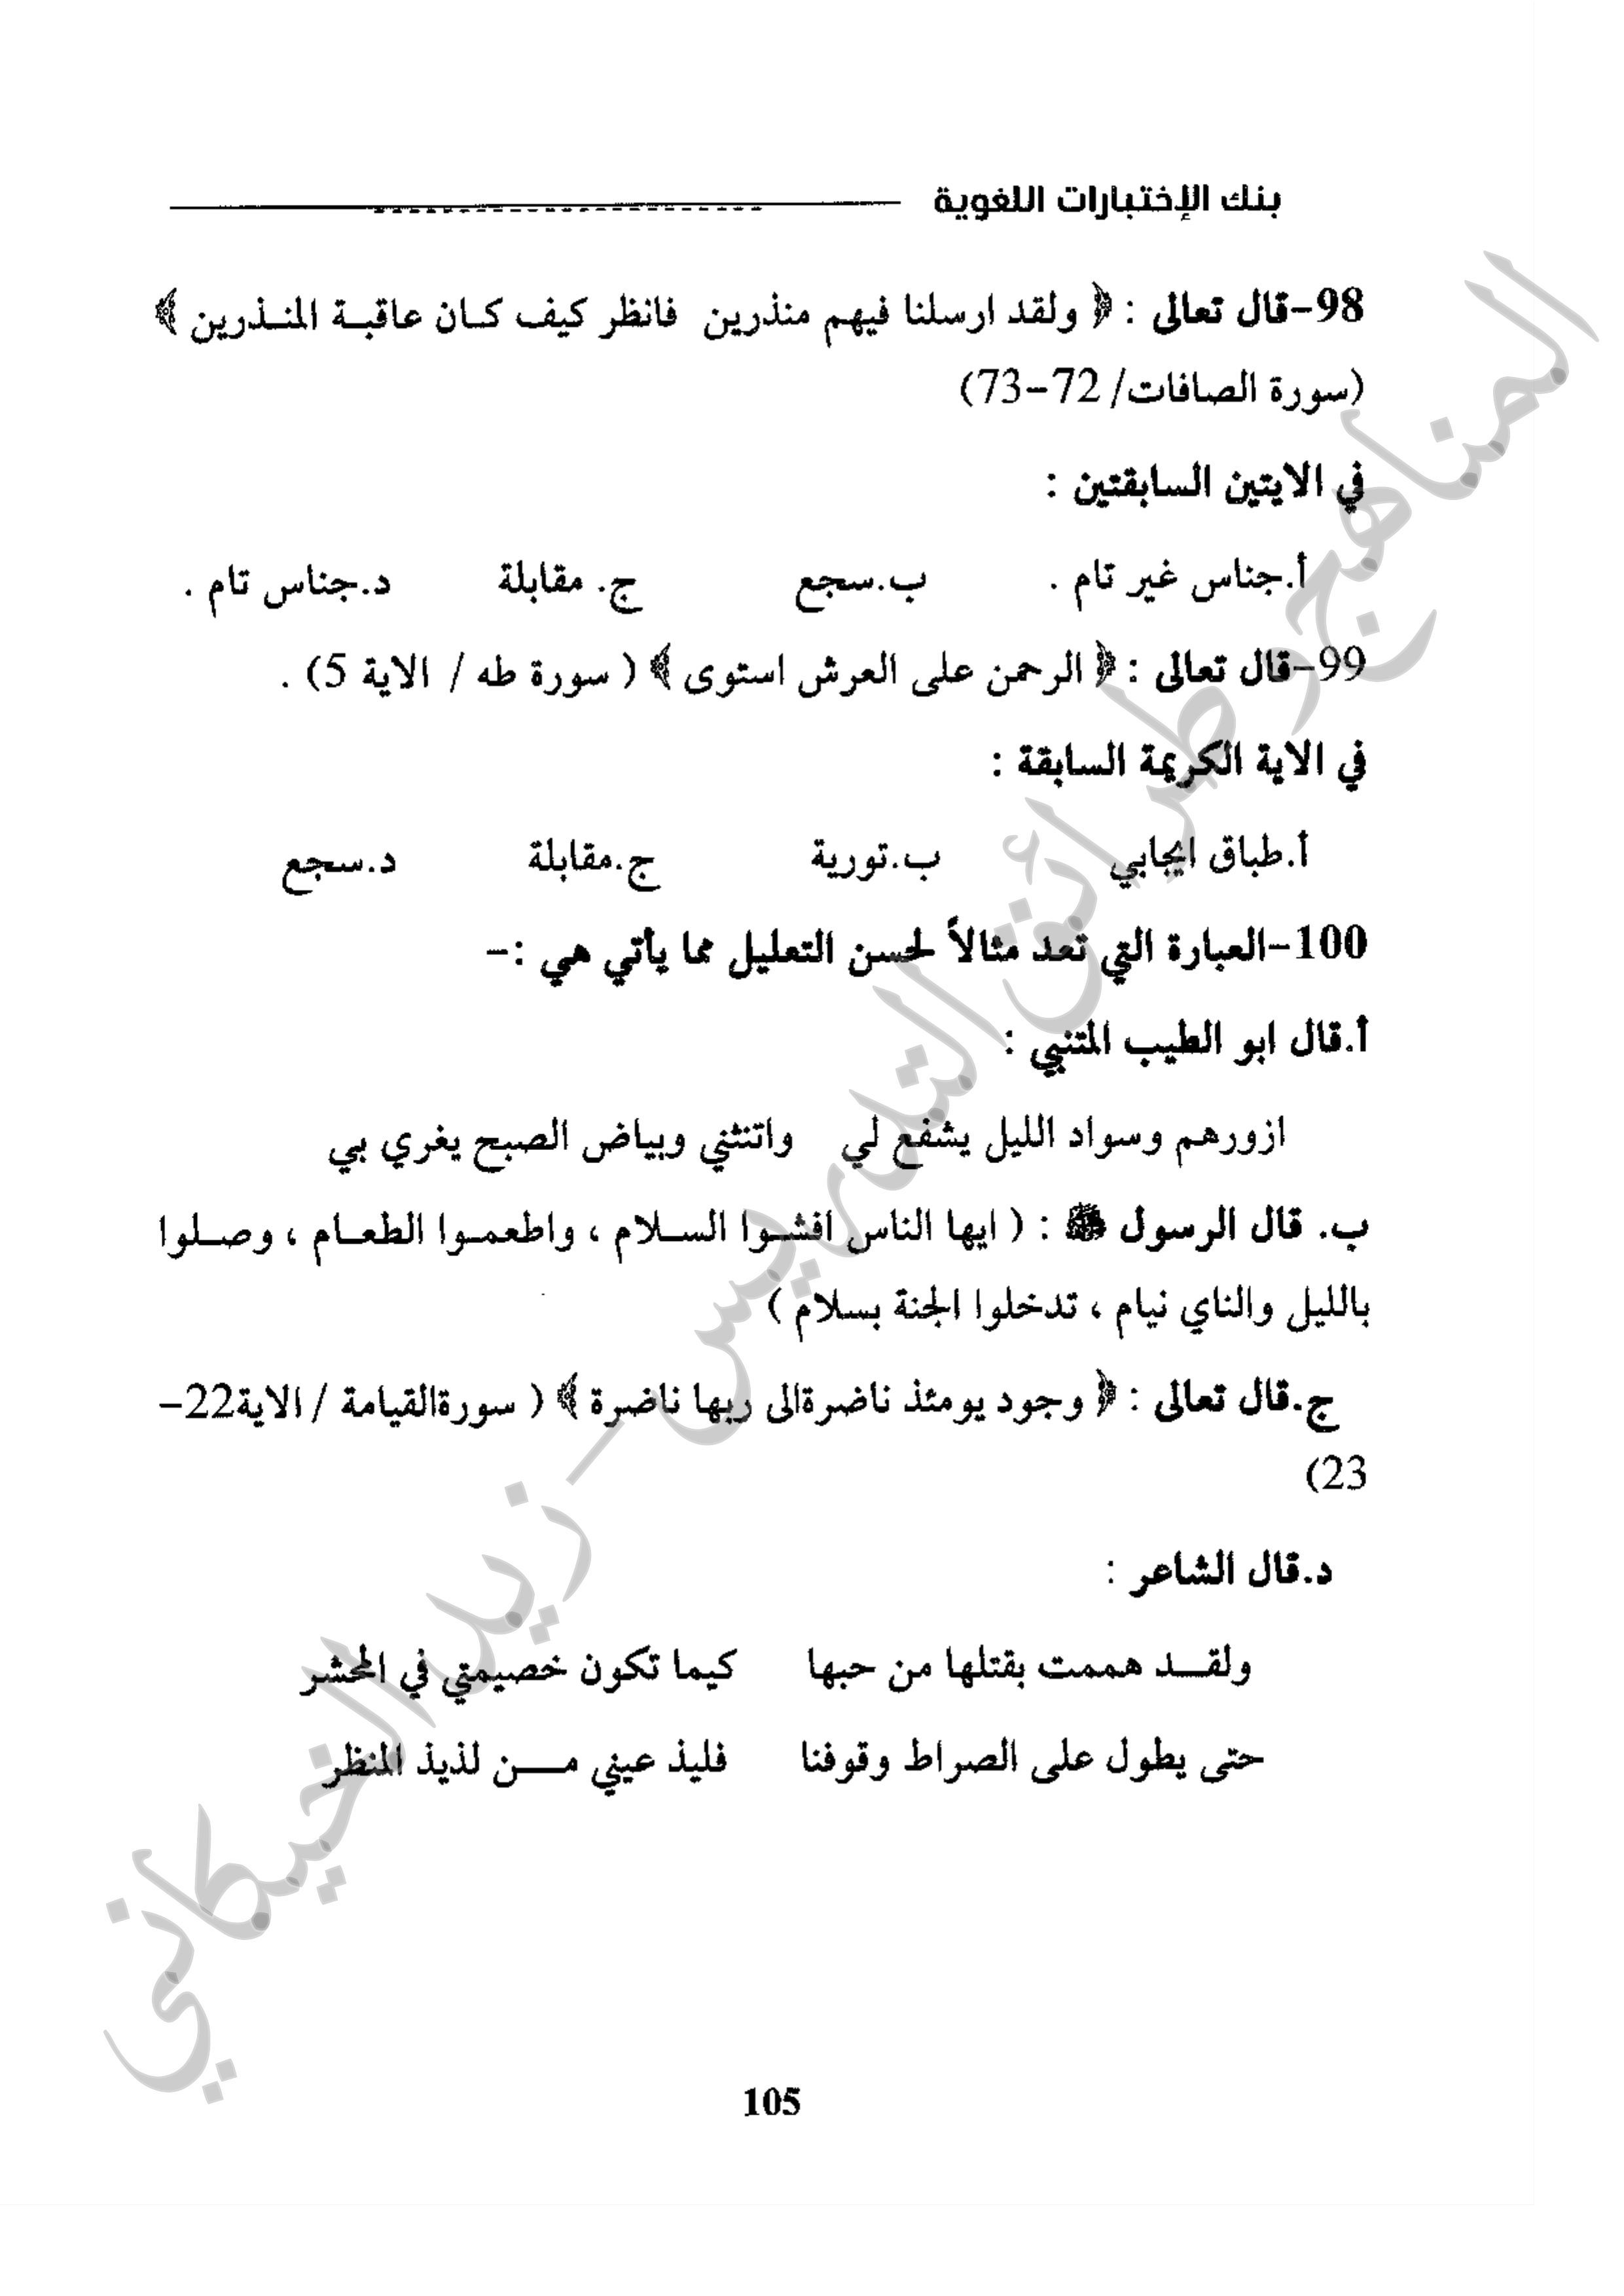 بنك الإختبارات اللغوية
98-قال تعالى : ﴿ ولقد ارسلنا فيهم منذرين فانظر كيف كان عاقبة المنذرين ﴾
(سورة الصافات/ 72-73)
في الايتين السابقتين :
أ.جناس غير تام . ب.سجع ج. مقابلة د.جناس تام .
99-قال تعالى : ﴿ الرحمن على العرش استوى ﴾ ( سورة طه / الاية 5) .
في الاية الكريمة السابقة :
أ.طباق ايجابي ب.تورية ج.مقابلة د.سجع
100-العبارة التي تعد مثالاً لحسن التعليل مما يأتي هي :-
أ.قال ابو الطيب المتنبي :
ازورهم وسواد الليل يشفع لي واتنثني وبياض الصبح يغري بي
ب. قال الرسول ﷺ : ( ايها الناس افشوا السلام ، واطعموا الطعام ، وصلوا
بالليل والناي نيام ، تدخلوا الجنة بسلام )
ج.قال تعالى : ﴿ وجود يومئذ ناضرةالى ربها ناضرة ﴾ ( سورةالقيامة / الاية22-
23)
د.قال الشاعر :
ولقد هممت بقتلها من حبها كيما تكون خصيمتي في المحشر
حتى يطول على الصراط وقوفنا فليذ عيني من لذيذ المنظر
105
المناهج وطرائق التدريس - زيد الخيكاني